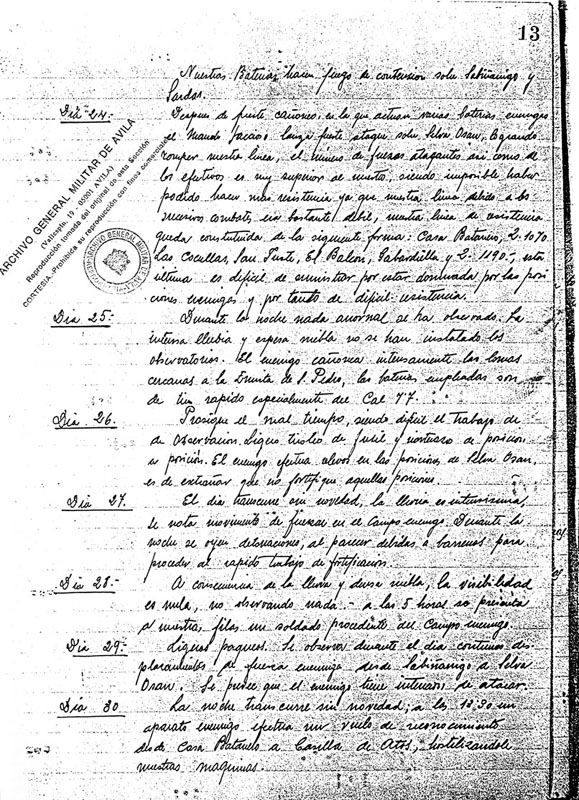 13
Nuestras Baterias hacen fuego de contension sobre Sabiñanigo y
Sardas.
Dia 24.- Despues de fuerte cañoneo, en la que actuan varias baterias enemigas
el Mando faccioso lanza fuerte ataque sobre Selva Osan, logrando
romper nuestra linea, el número de fuerzas atacantes asi como de
los efectivos es muy superior al nuestro, siendo imposible haber
podido hacer mas resistencia ya que nuestra linea debido a los
sucesivos combates, era bastante debil, nuestra linea de resistencia
queda constituida de la siguiente forma: Casa Batanero, 2-1070
Las Cocullas, San Puste, El Balcon, Gabardilla y 2-1190.-, esta
ultima es dificil de suministrar por estar dominada por las posi
ciones enemigas y por tanto de dificil resistencia.
Dia 25.- Durante la noche nada anormal se ha observado. La
intensa lluvia y espesa niebla no se han instalado los
observatorios. El enemigo cañonea intensamente las lomas
cercanas a la Ermita de S. Pedro, las baterias empleadas son
de tiro rapido especialmente del Cal 77.
Dia 26. Prosigue el mal tiempo, siendo dificil el trabajo de
de Observacion. Ligero tiroteo de fusil y mortiazo de posicion
a posición. El enemigo efectua relevos en las posiciones de Selva Osan,
es de extrañar que no fortifique aquellas posiciones.
Dia 27. El dia transcurre sin novedad, la lluvia es intensisima,
se nota movimiento de fuerzas en el campo enemigo. Durante la
noche se oyen detonaciones, al parecer debidas a barrenos para
proceder al rapido trabajo de fortificacion.
Dia 28.- A consecuencia de la lluvia y densa niebla, la visibilidad
es nula, no observando nada.- a las 5 horas se presenta
a nuestras filas un soldado procedente del Campo enemigo.
Dia 29.- Ligeros paqueos. Se observa durante el dia continuos des-
plazamientos de fuerza enemiga desde Sabiñanigo a Selva
Osan. Se prevee que el enemigo tiene intensiones de atacar.
Dia 30 La noche transcurre sin novedad, a las 13:30 un
aparato enemigo efectua un vuelo de reconocimiento
desde Casa Batanero a Casilla de Atos, hostilizandole
nuestras maquinas.
ARCHIVO GENERAL MILITAR DE AVILA
(Vallespin, 19 - 05001 AVILA)
Reproducción tomada del original de esta Sección
CORTESIA.-Prohibida su reproducción con fines comerciales
ARCHIVO GENERAL MILITAR DE AVILA